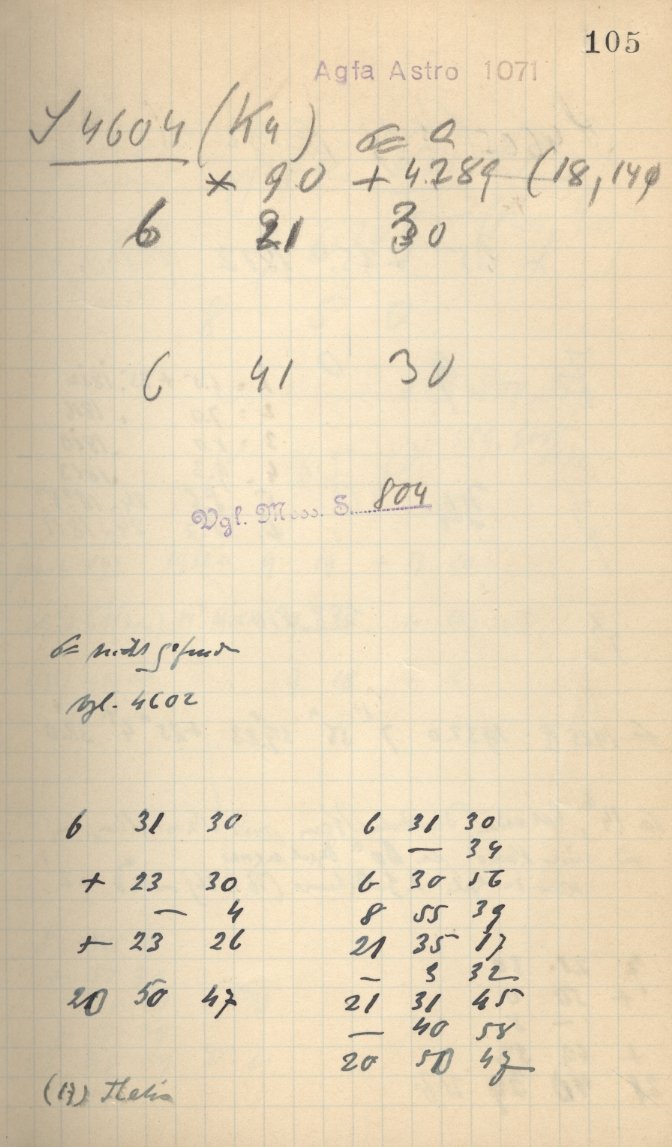 105
Agfa Astro 1071
S 4604 (K4)
* 90 + 4.289 (18, 14)
6 21 30
6 41 30
Vgl. Mess. S. 804
nicht gefunden
vgl. 4602
6 31 30
+ 23 30
— 4
+ 23 26
20 50 47
6 31 30
— 34
6 30 56
8 55 39
21 35 17
— 3 32
21 31 45
— 40 58
20 50 47
(17)